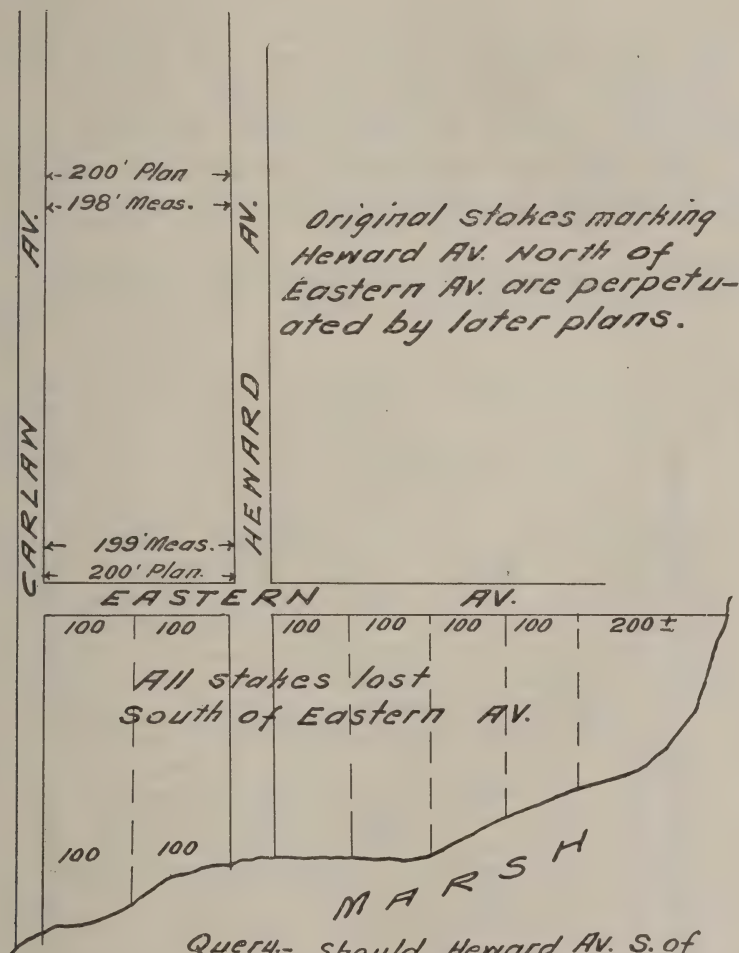 200' Plan
198' Meas.
AV.
AV.
Original stakes marking
Heward Av. North of
Eastern Av. are perpetu-
ated by later plans.
CARLAW
HEWARD
199' Meas.
200' Plan.
EASTERN AV.
100 100 100 100 100 100 200 ±
All stakes lost
South of Eastern Av.
100 100
MARSH
Query.- Should Heward Av. S. of